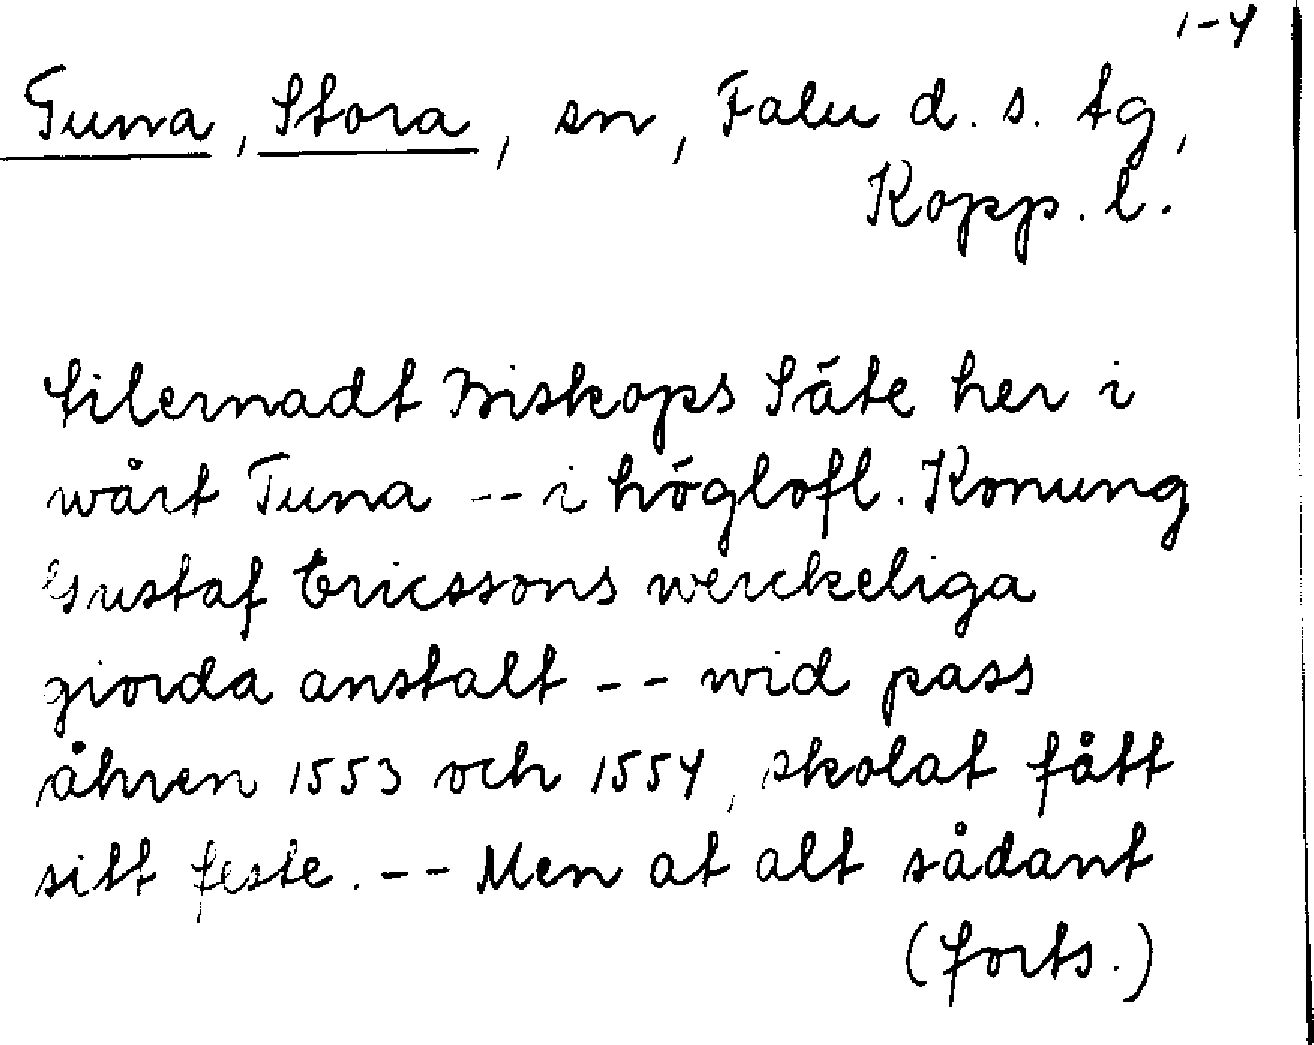 1-4
Tuna, Stora, sn, Falu d. s. tg,
Kopp. l.
tilernadt Biskops Säte her i
wårt Tuna -- i höglofl. Konung
Gustaf Ericssons werckeliga
giorda anstalt -- wid pass
åhren 1553 och 1554, skolat fått
sitt feste. -- Men at alt sådant
(forts.)